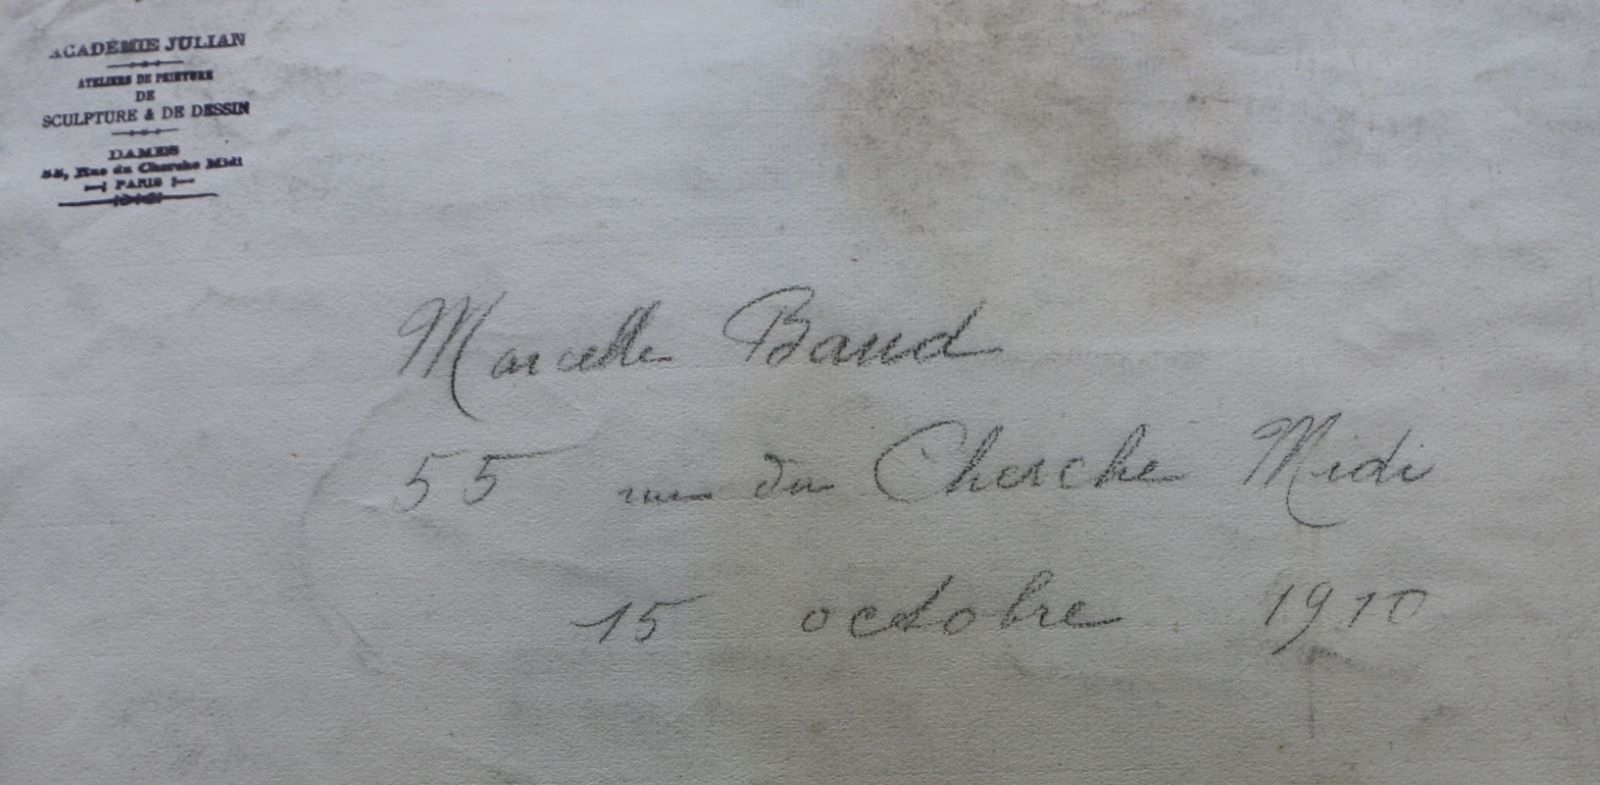 ACADÉMIE JULIAN
ATELIERS DE PEINTURE
DE
SCULPTURE & DE DESSIN
DAMES
55, Rue du Cherche Midi
PARIS
Marcelle Baud
55 rue du Cherche Midi
15 octobre 1910